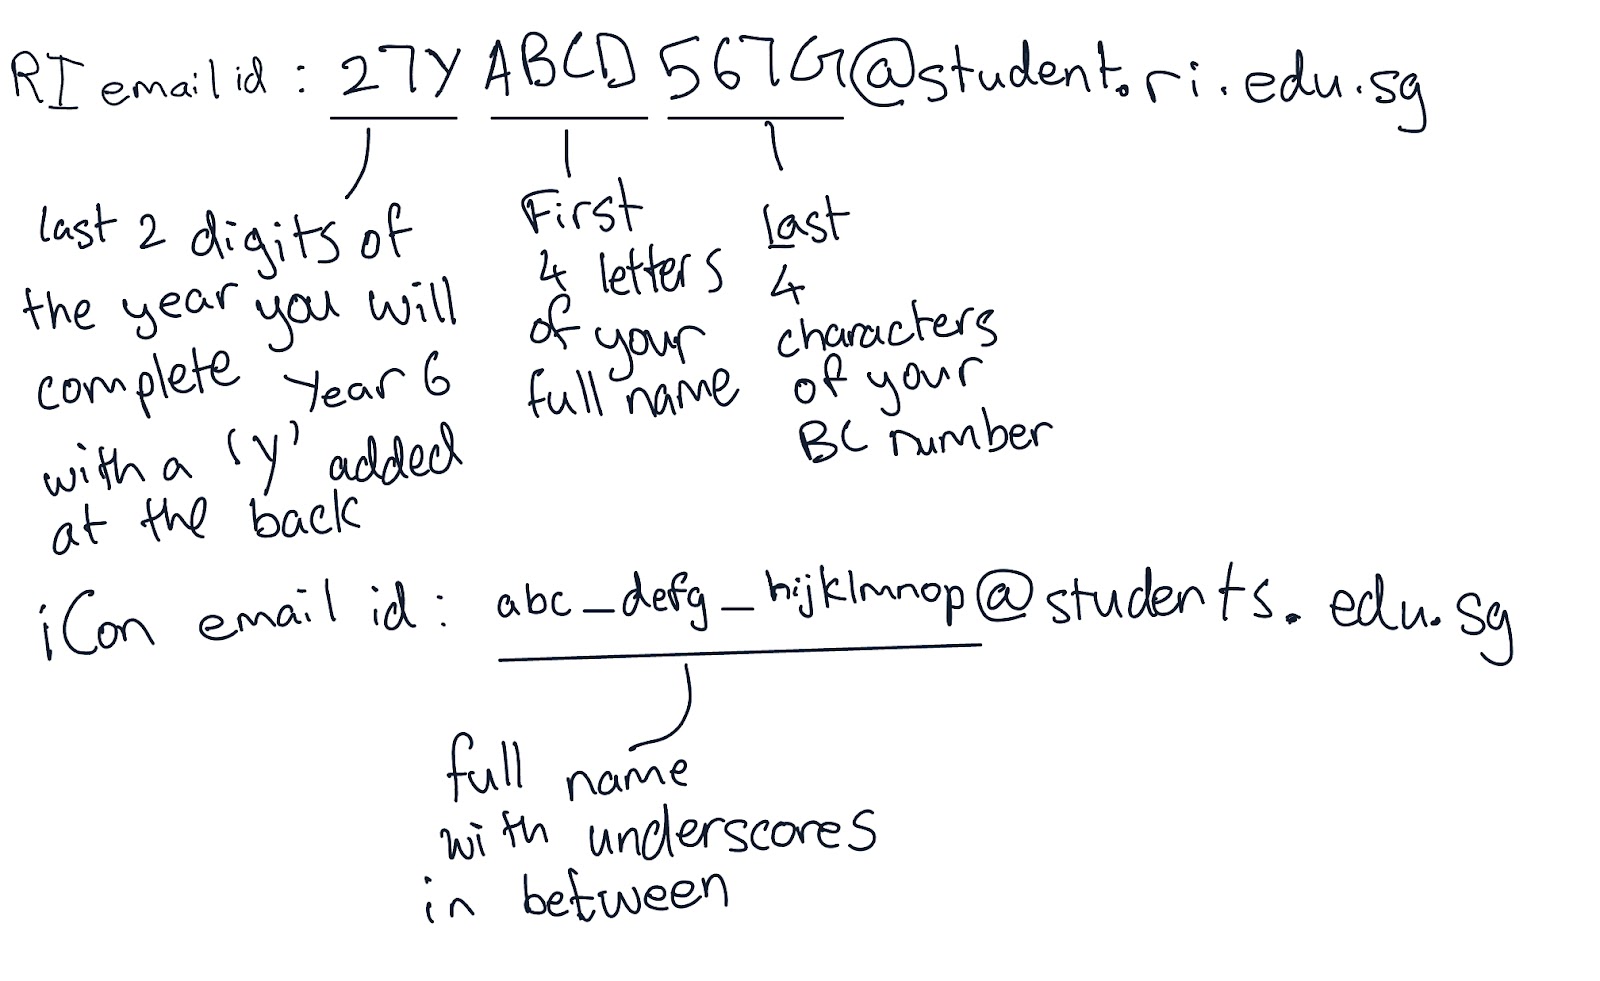 RI email id : 27Y ABCD 567G@student.ri.edu.sg
last 2 digits of
the year you will
complete Year 6
with a 'Y' added
at the back
First
4 letters
of your
full name
Last
4
characters
of your
BC number
iCon email id : abc_defg_hijklmnop@students.edu.sg
full name
with underscores
in between